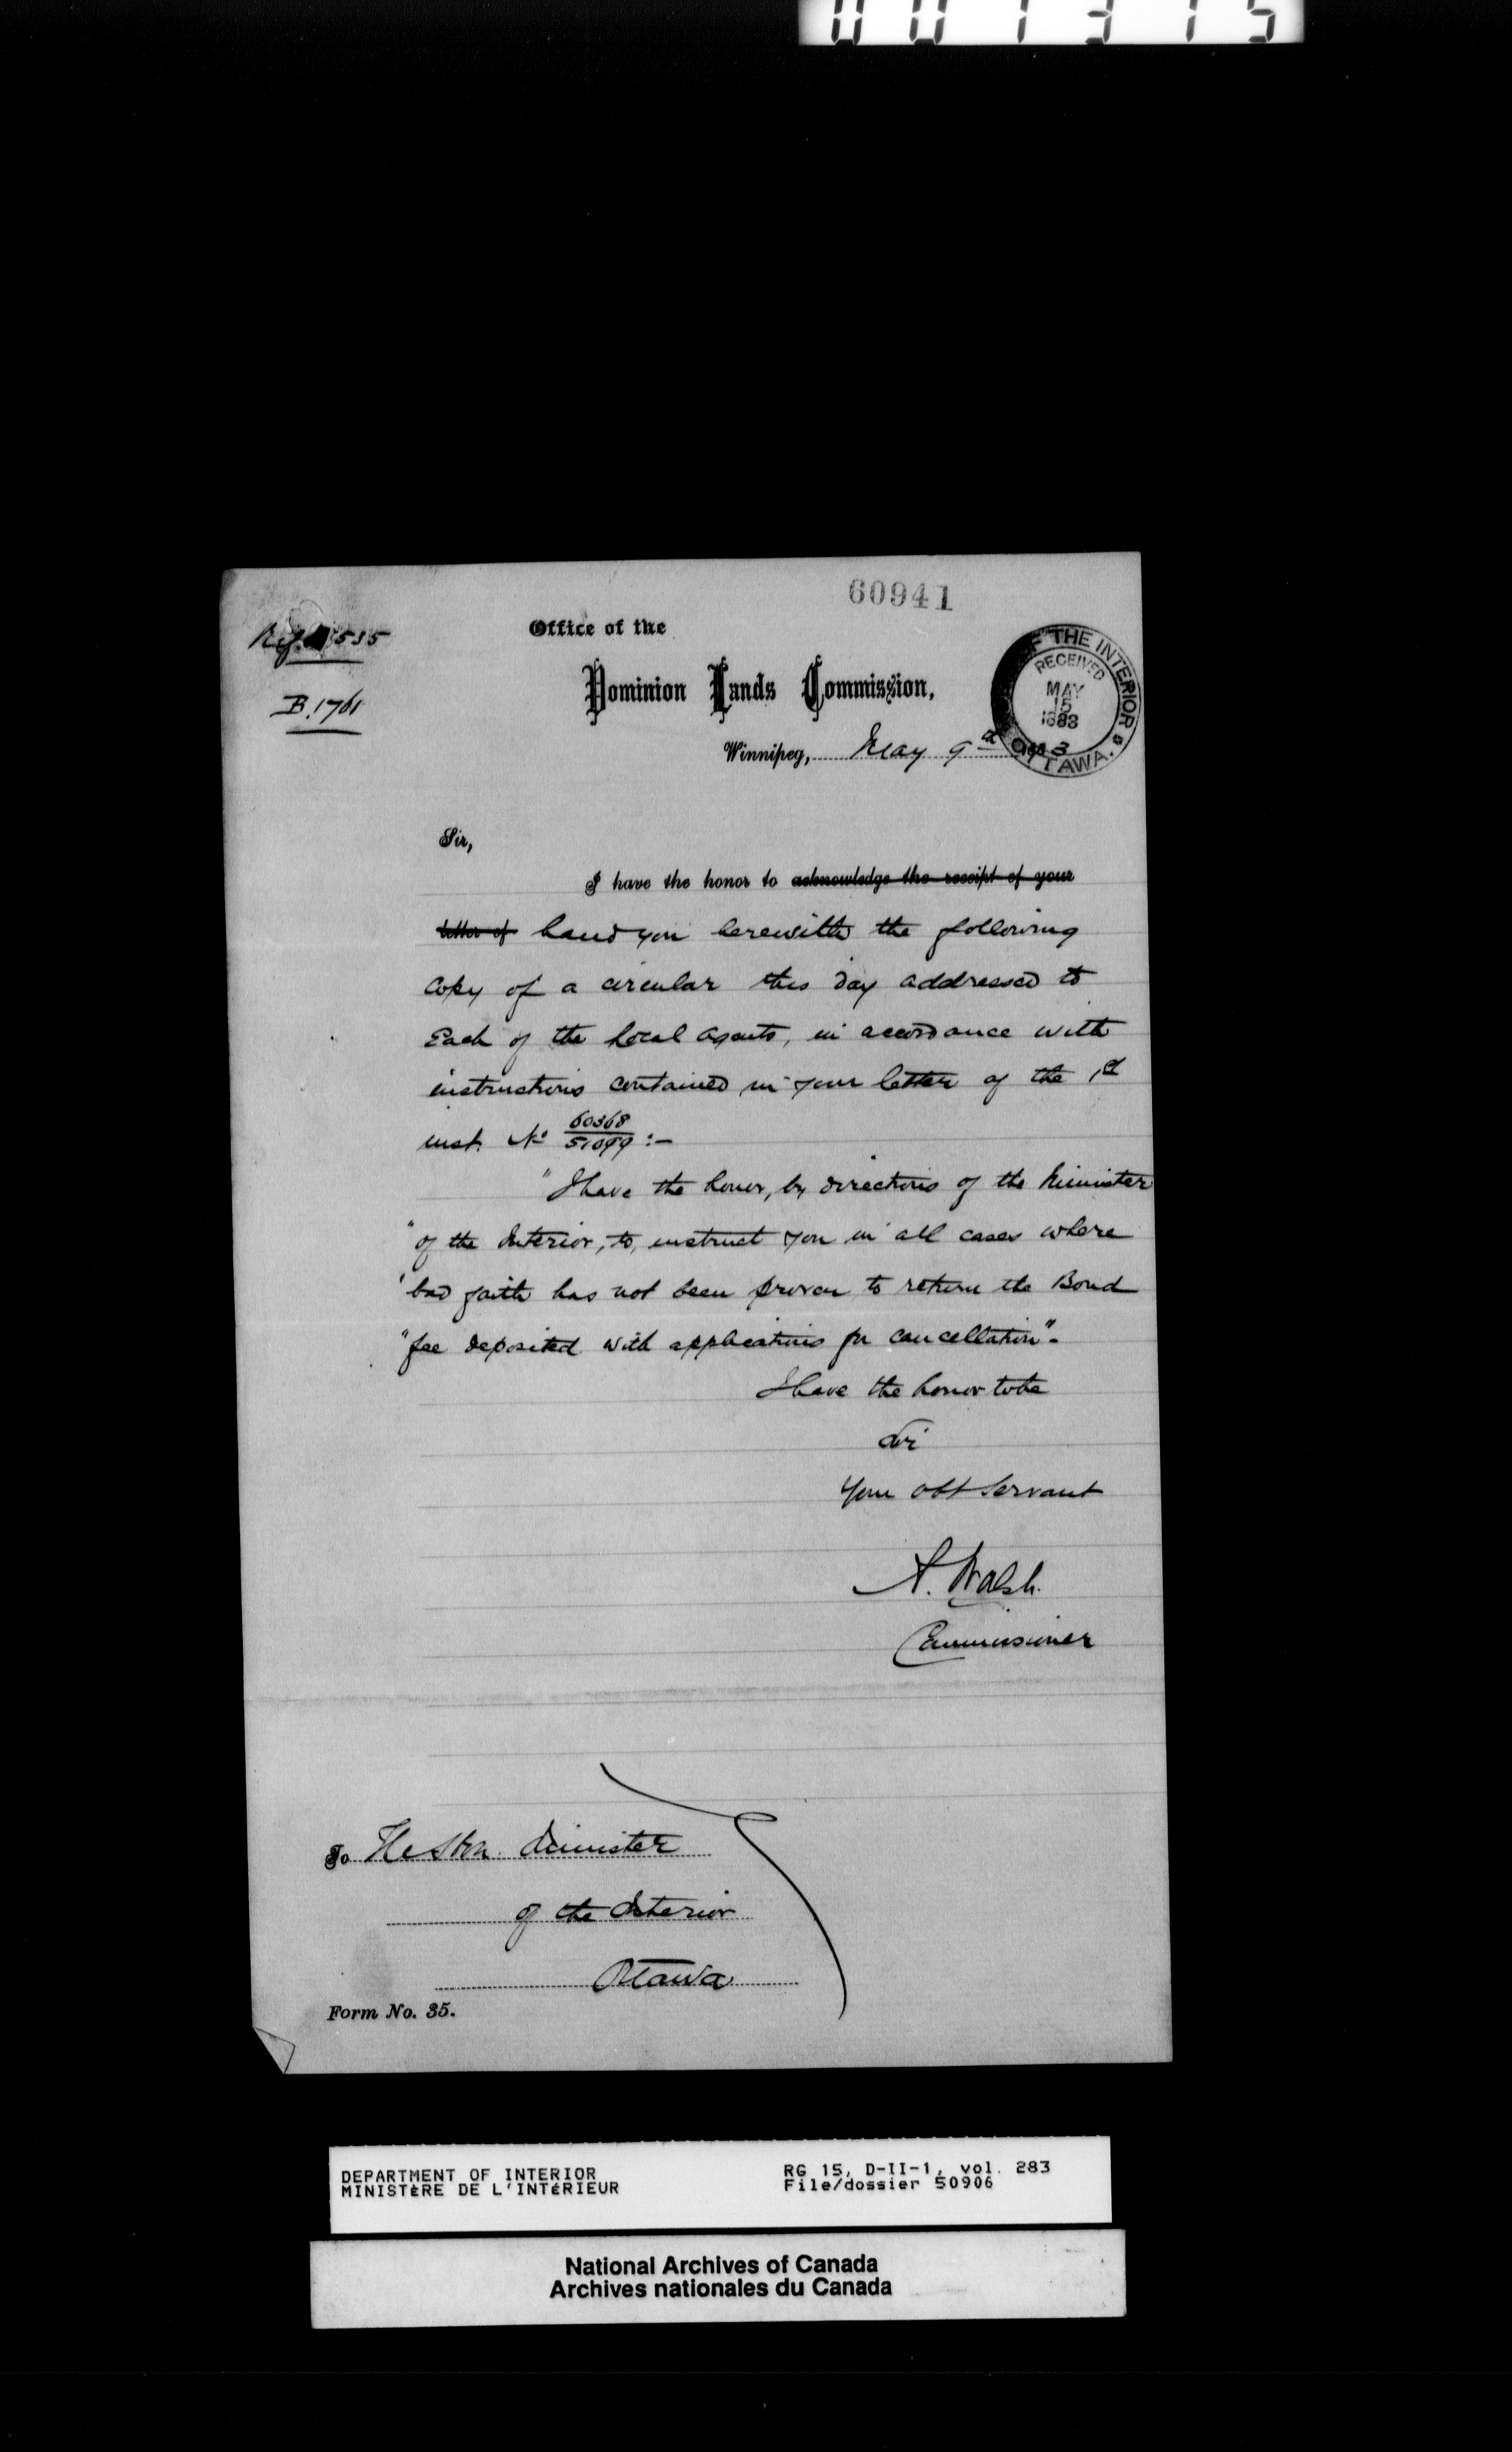 001315
60941
Ref. 1535
B.1761
Office of the
Dominion Lands Commission,
Winnipeg, May 9th 1883
OF THE INTERIOR
RECEIVED
MAY
15
1883
OTTAWA.
Sir,
I have the honor to acknowledge the receipt of your
letter of hand you herewith the following
copy of a circular this day addressed to
Each of the local agents, in accordance with
instructions contained in your letter of the 1st
inst. No 60368
51099 :—
"I have the honor, by directions of the Minister
"of the Interior, to, instruct you in all cases where
"bad faith has not been proven to return the Bond
"fee deposited with applications for cancellation".
I have the honor to be
Sir
Your obt Servant
A. Walsh.
Commissioner
To The Hon. Minister
of the Interior
Ottawa
Form No. 35.
DEPARTMENT OF INTERIOR
MINISTÈRE DE L'INTÉRIEUR
RG 15, D-II-1, vol. 283
File/dossier 50906
National Archives of Canada
Archives nationales du Canada